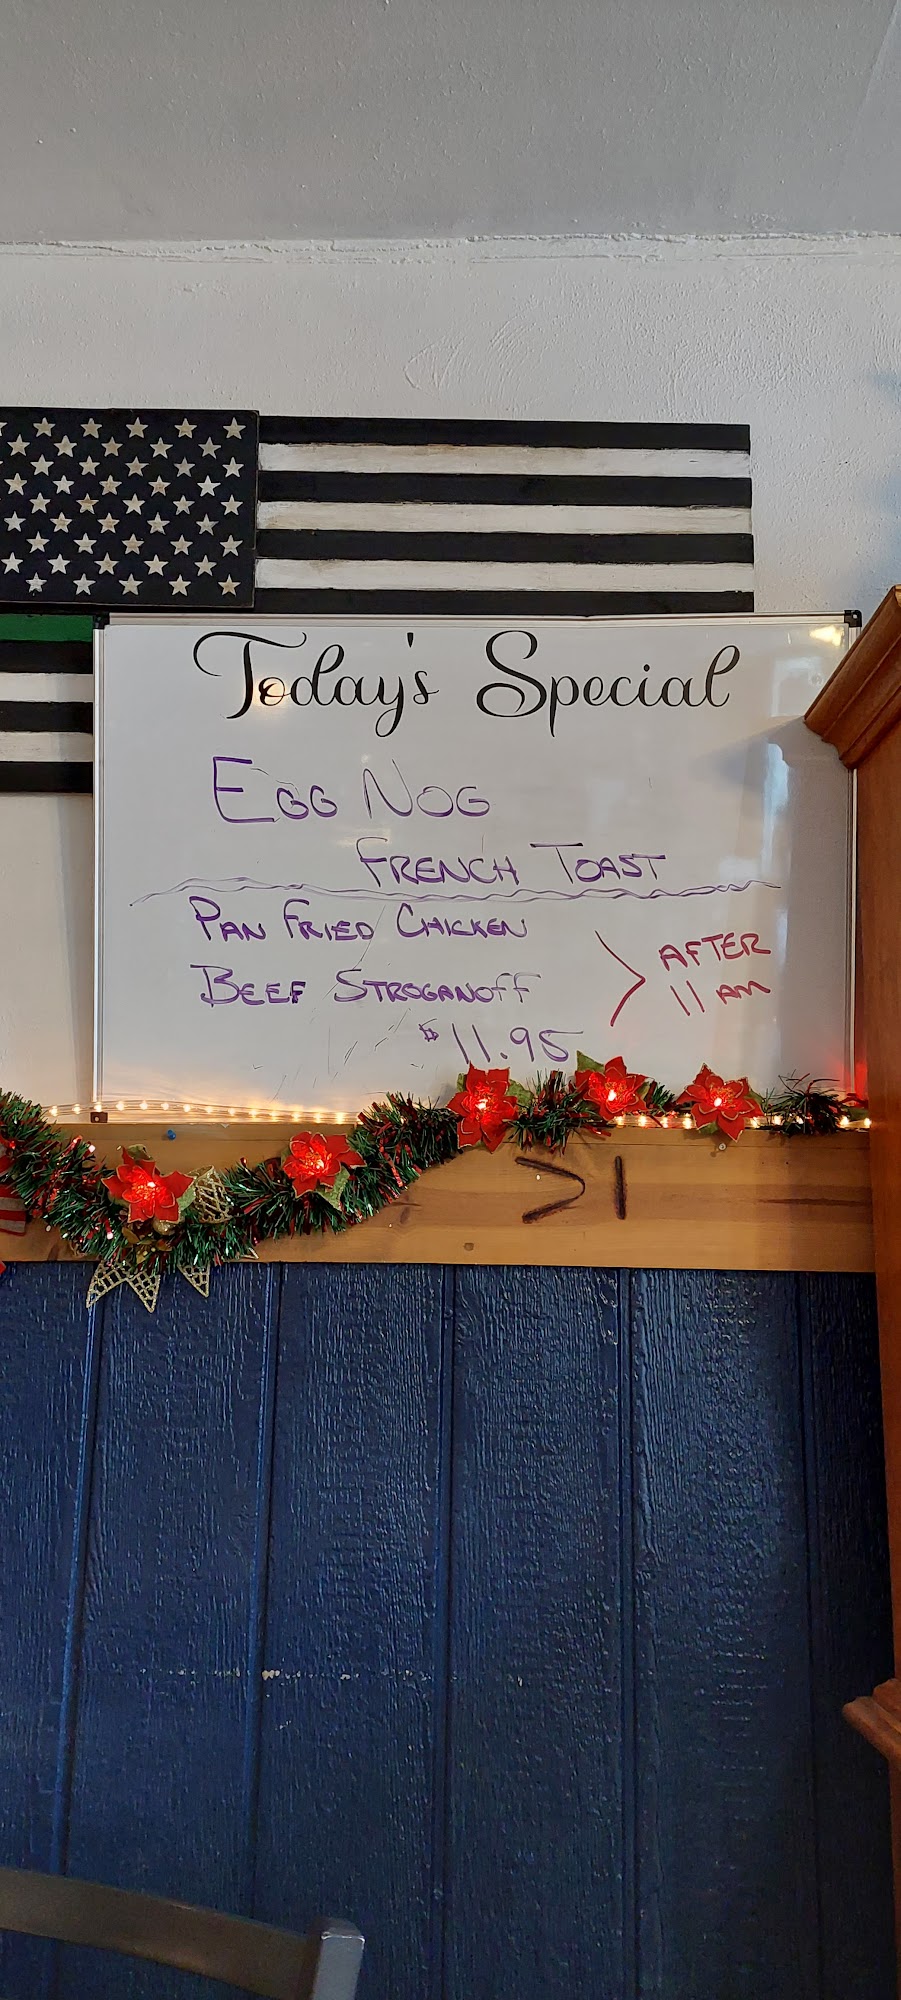 Today's Special
EGG NOG
FRENCH TOAST
PAN FRIED CHICKEN
BEEF STROGANOFF
$11.95
AFTER
11 AM